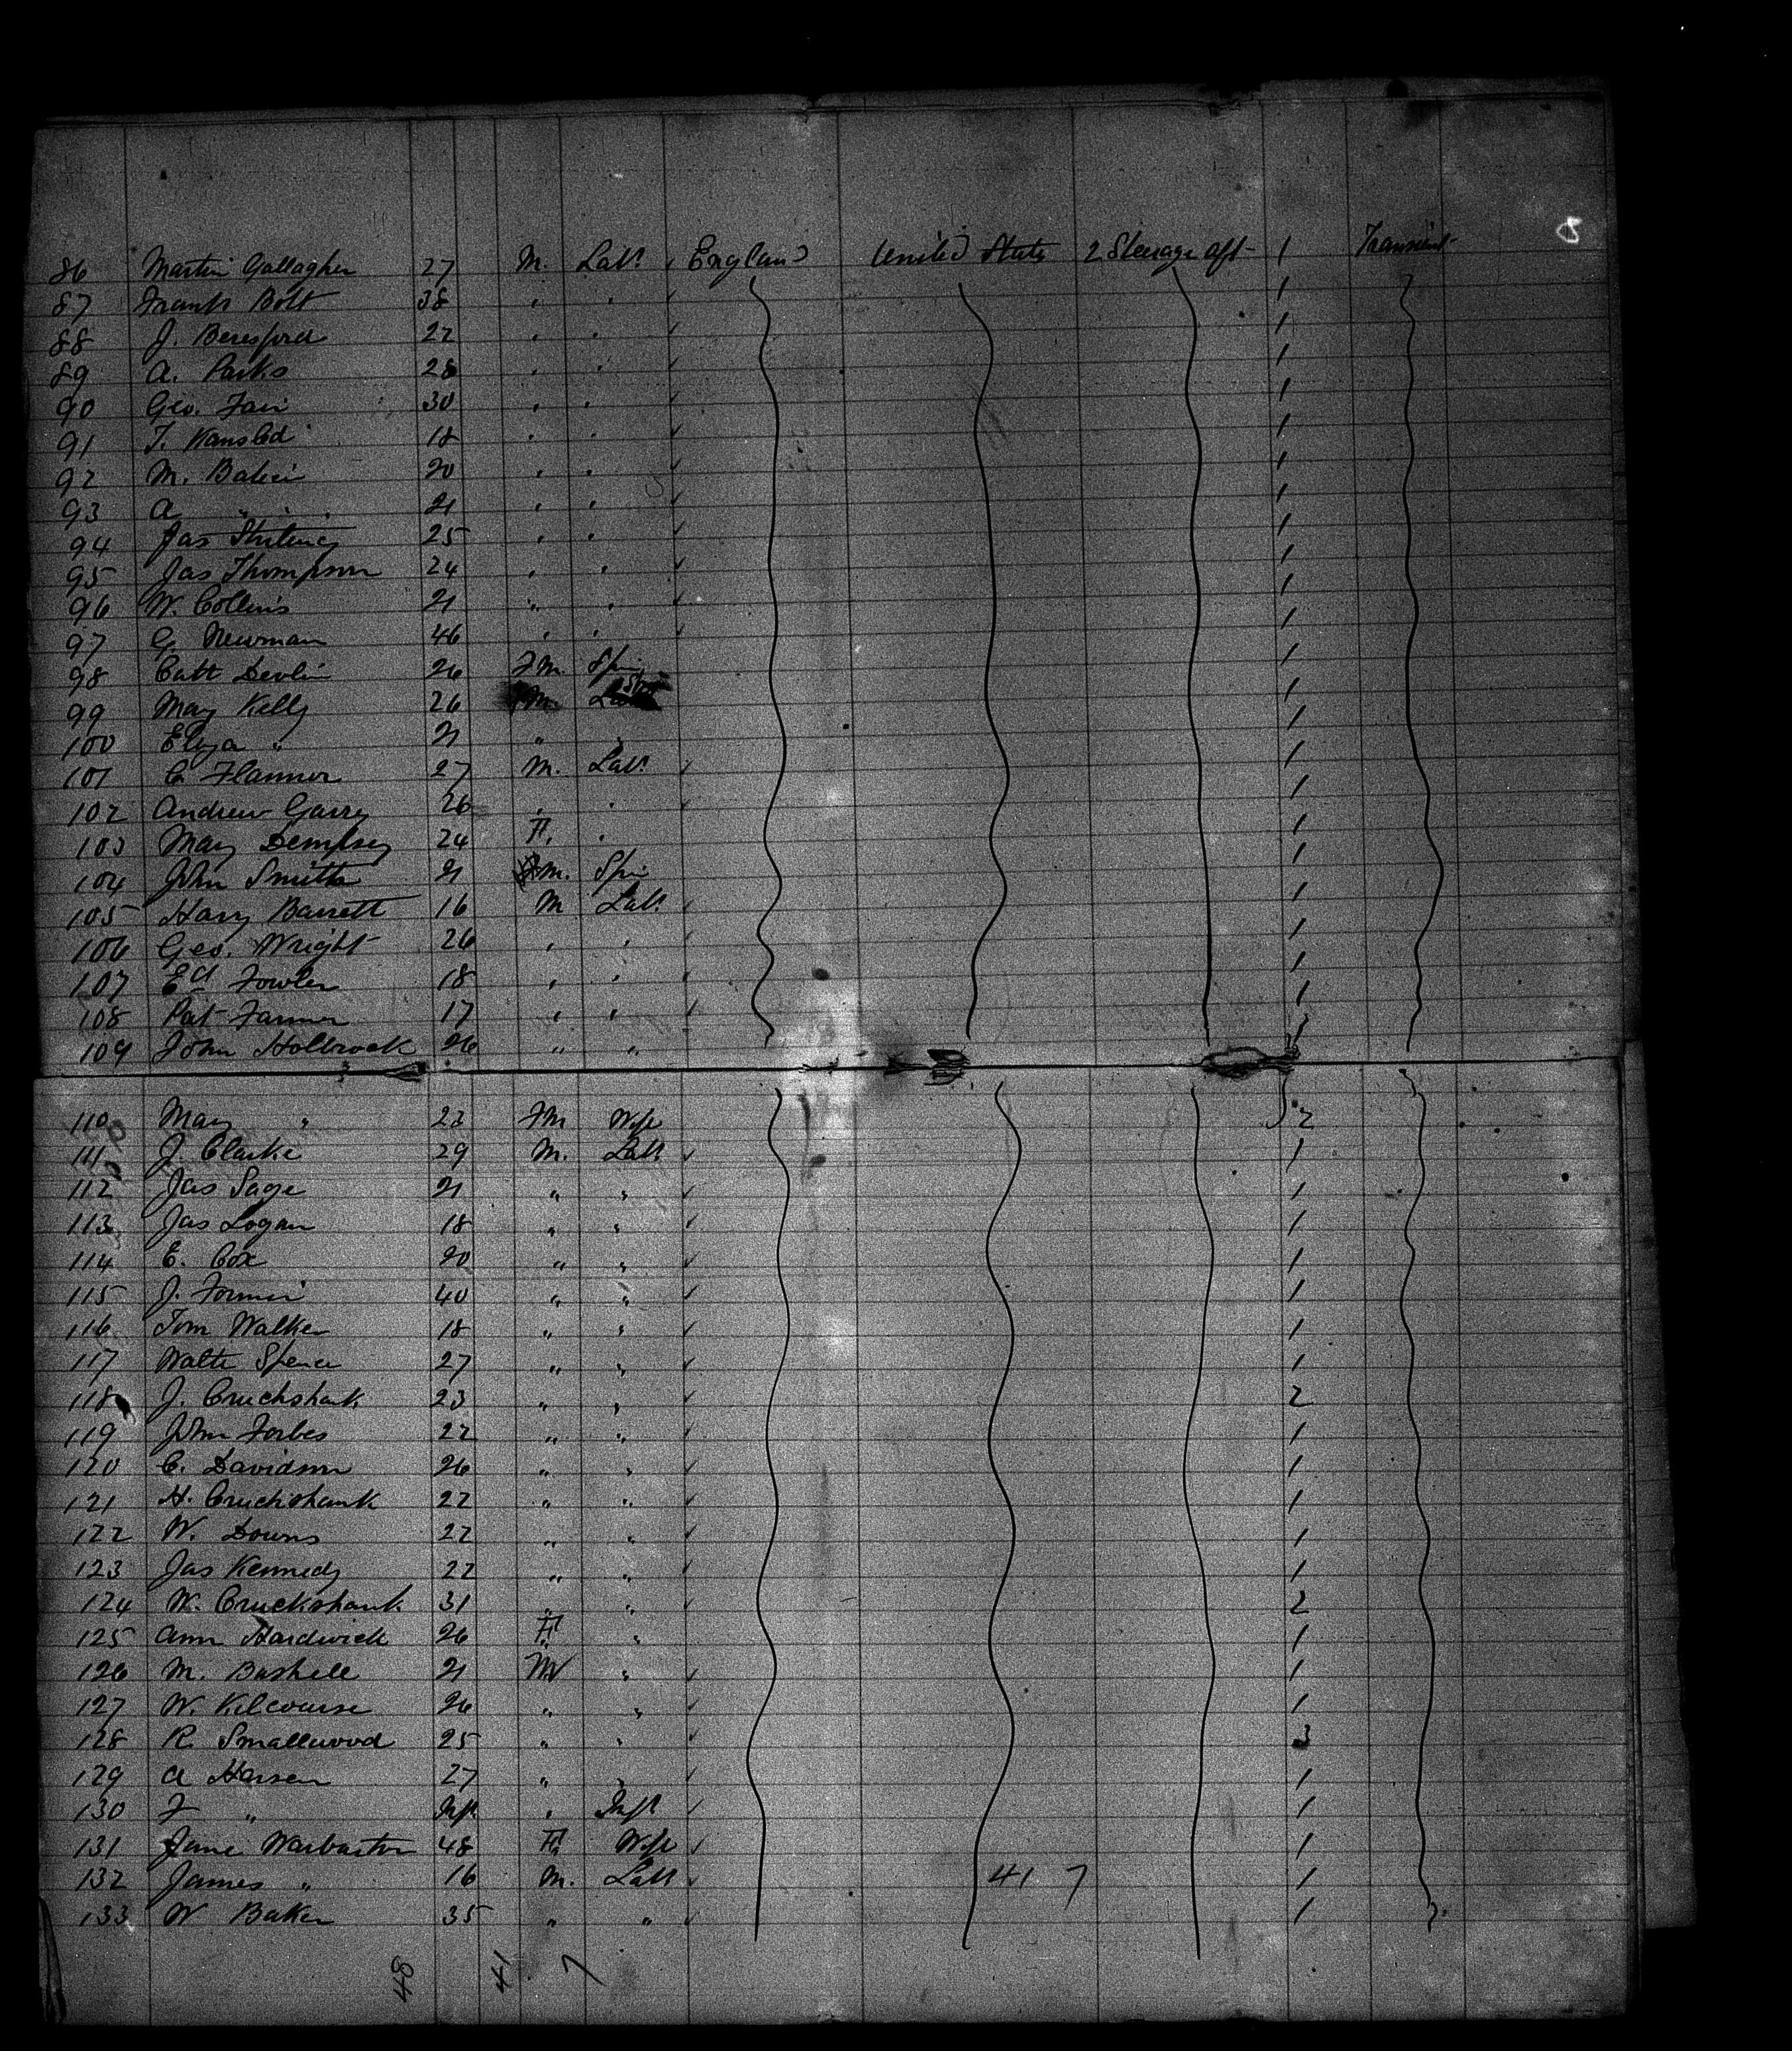 8
86 Martin Gallagher 27 M. Labr England United States 2 Steerage aft 1 Transient
87 Frank Bolt 38 " " 1
88 J. Beresford 22 " " 1
89 A. Parks 28 " " 1
90 Geo. Fair 30 " " 1
91 T. 18 " " 1
92 M. 20 " " 1
93 A " 21 " " 1
94 Jas 25 " " 1
95 Jas Thompson 24 " " 1
96 W. Collins 21 " " 1
97 G. Newman 46 " " 1
98 Cath Devlin 26 Fm. Spin 1
99 Mary Kelly 26 Fm. Spin 1
100 Eliza " 21 " " 1
101 C Flannor 27 M. Labr 1
102 Andrew Garry 26 " " 1
103 Mary Dempsey 24 F. " 1
104 John Smith 21 M. Spin 1
105 Harry Barrett 16 M Labr 1
106 Geo. Wright 26 " " 1
107 Ed Fowler 18 " " 1
108 Pat Farmer 17 " " 1
109 John Holbrook 26 " " 1
110 Mary " 23 Fm Wife 2
111 J. Clarke 29 M. Labr 1
112 Jas Sage 21 " " 1
113 Jas Logan 18 " " 1
114 E. Cox 20 " " 1
115 J. 40 " " 1
116 Tom Walker 18 " " 1
117 Walter Spence 27 " " 1
118 J. Cruckshank 23 " " 2
119 John Forbes 22 " " 1
120 C. Davidson 26 " " 1
121 H. Cruckshank 22 " " 1
122 W. Downs 22 " " 1
123 Jas Kennedy 22 " " 1
124 W. Cruckshank 31 " " 2
125 Ann Hardwick 26 F " 1
126 M. Bushell 21 M " 1
127 W. Kilcourse 26 " " 1
128 R. Smallwood 25 " " 3
129 A Hansen 27 " " 1
130 F " Inft " Inft 1
131 Jane Warburton 48 F. Wife 1
132 James " 16 M. Labr 41 7 1
133 W Baker 35 " " 1
48 41 7